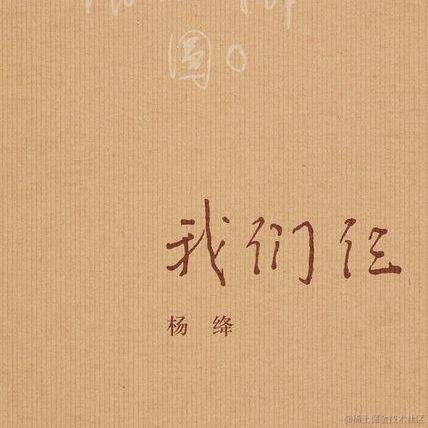 圆。
我们仨
杨 绛
@稀土掘金技术社区